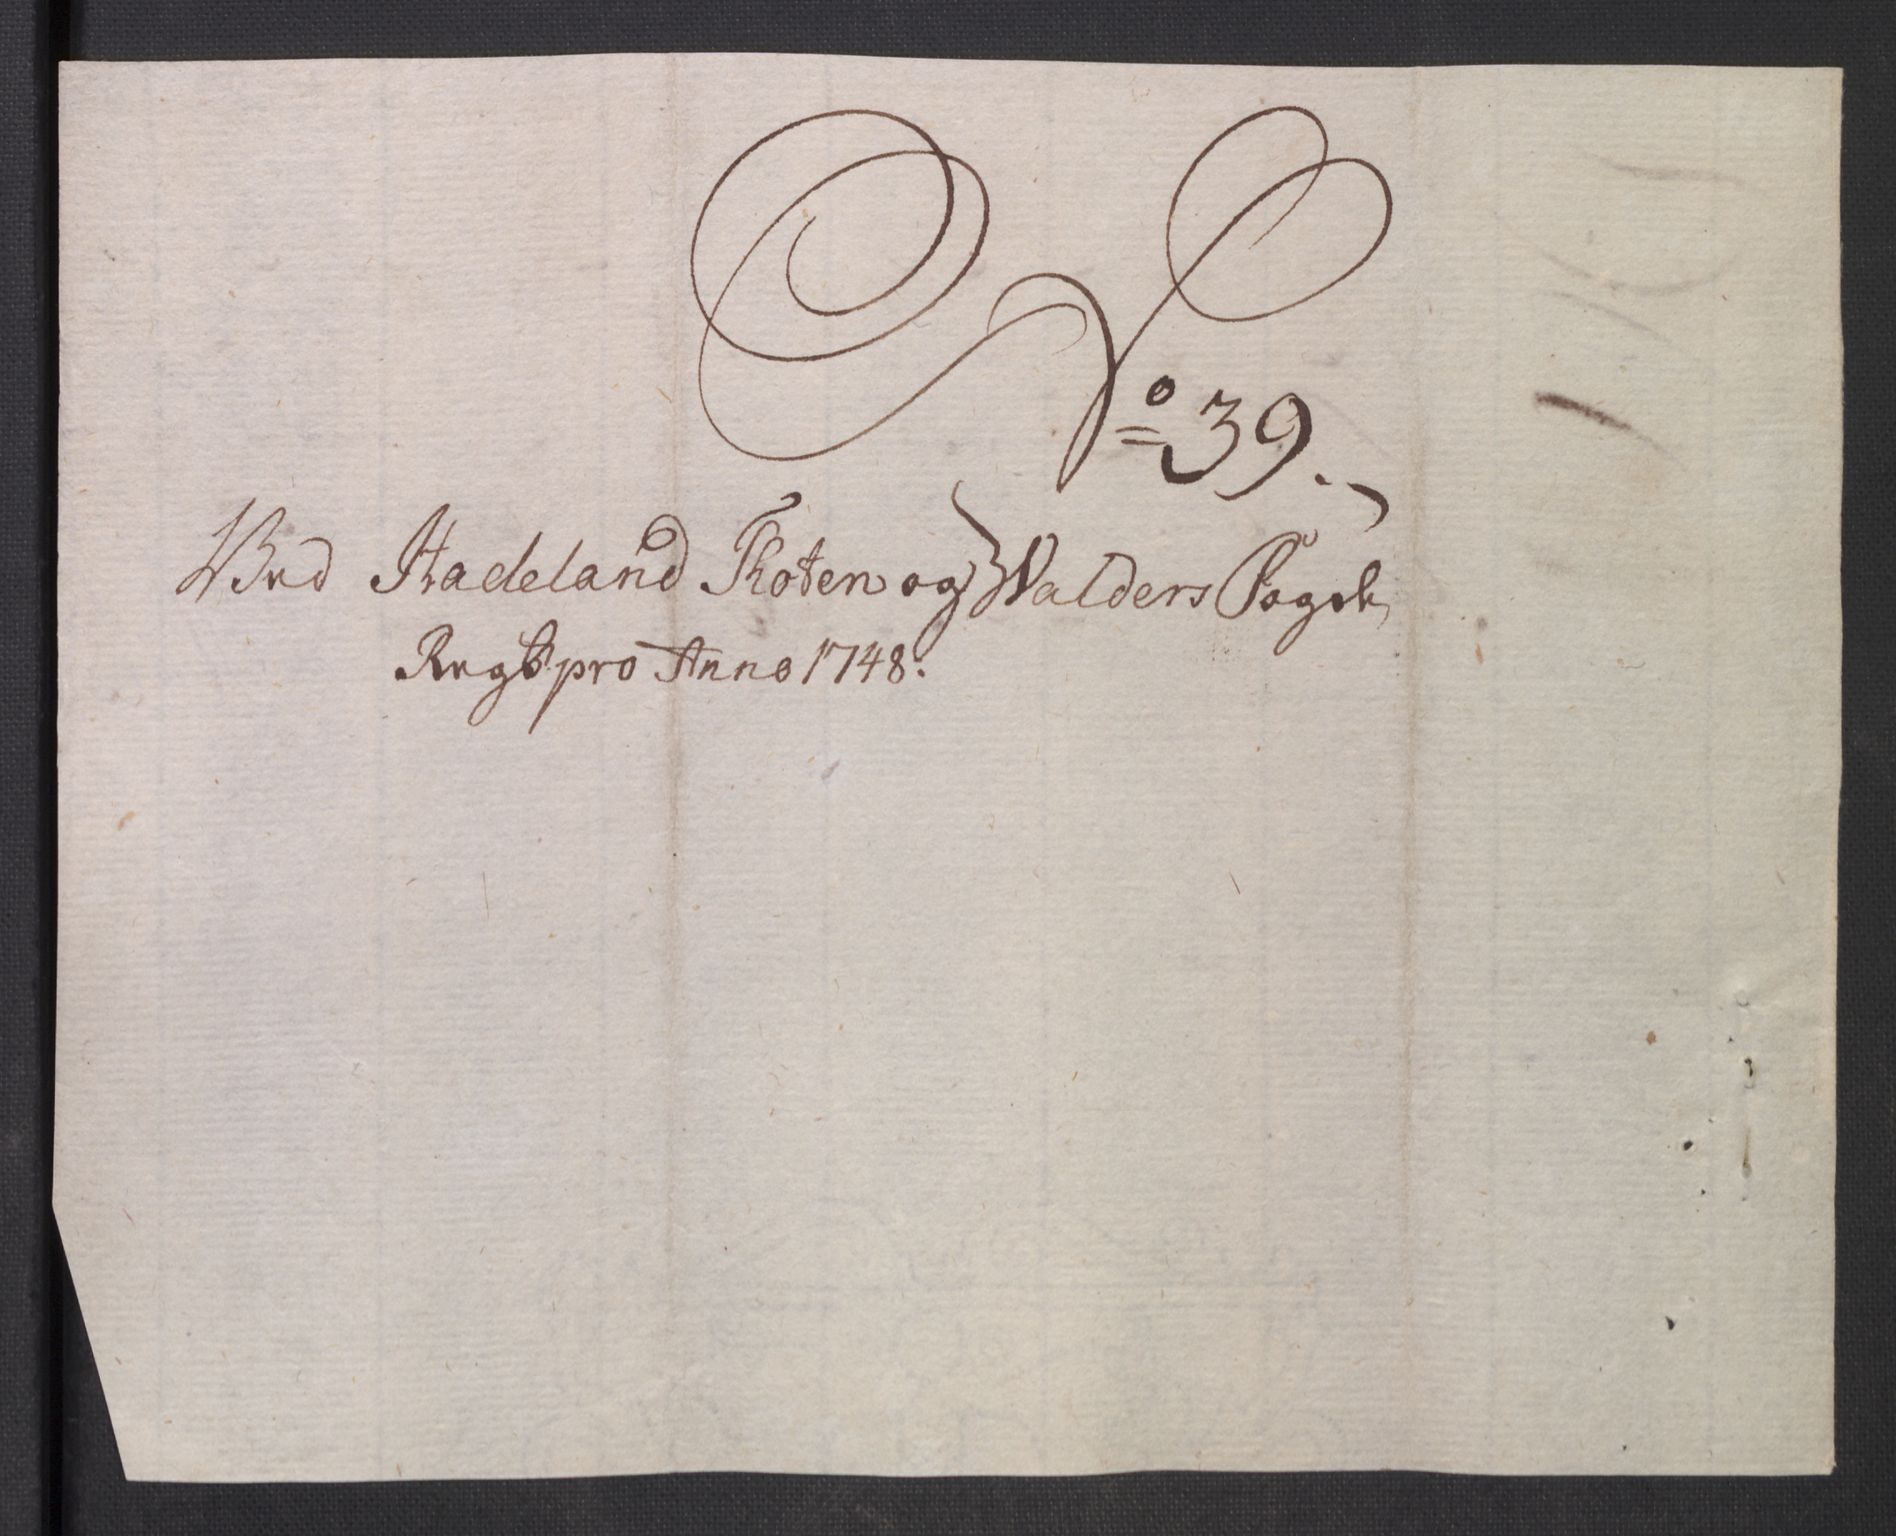 No 39.
Ved Hadeland Thoten og Walders Fogd.
Regsk. pro Anno 1748.